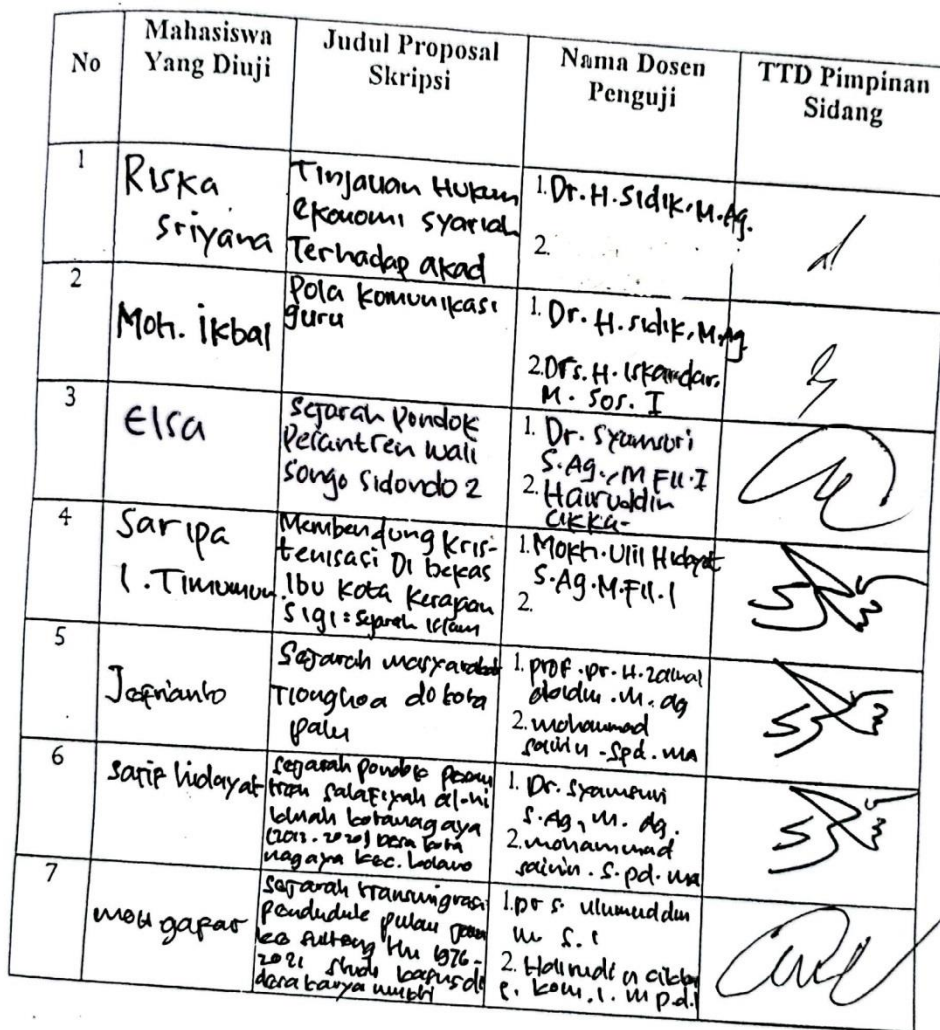 No
Mahasiswa
Yang Diuji
Judul Proposal
Skripsi
Nama Dosen
Penguji
TTD Pimpinan
Sidang
1
Riska
Sriyana
Tinjauan Hukum
ekonomi syariah
Terhadap akad
1. Dr. H. Sidik, M.Ag.
2.
2
Moh. ikbal
Pola komunikasi
guru
1. Dr. H. sidik, M.Ag
2. Drs. H. Iskandar.
M. Sos. I
3
Elsa
Sejarah Pondok
Pesantren wali
Songo Sidondo 2
1. Dr. Syamsuri
S.Ag., M Fil.I
2. Hairuddin
Cikka-
4
Saripa
I. Timumun
Membendung Kris-
tenisasi Di bekas
Ibu Kota Kerajaan
Sigi: Sejarah Islam
1. Mokh. Ulil Hidayat
S.Ag.M.Fil.I
2.
5
Jefrianto
Sejarah masyarakat
Tionghoa
palu
1. Prof. Dr. H. Zainal
abidin. M. ag
2. mohammad
sairin. Spd. ma
6
Sarif hidayat
Sejarah pondok pesan
tren salafiyah al-
kotanagaya
2020) Desa kota
nagaya kec. bolano
1. Dr. Syamsuri
S.Ag, M. Ag.
2. mohammad
sairin. S. pd. ma
7
moh gafar
Sejarah transmigrasi
Penduduk pulau
ke Sulteng 1976-
2021 Studi kasus di
desa karya
1. Drs. ulumuddin
M. S. I
2. Hairuddin cikka
kom. I. M pd.i